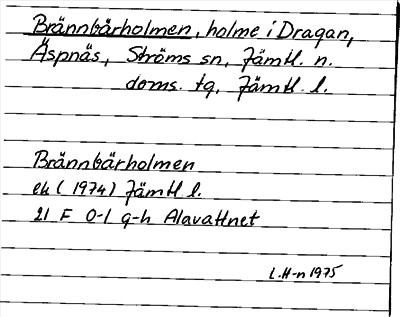 Brännbärholmen, holme i Dragan,
Äspnäs, Ströms sn, Jämtl. n.
doms. tg, Jämtl. l.
Brännbärholmen
ek (1974) Jämtl l.
21 F 0-1 g-h Alavattnet
L.H-n 1975